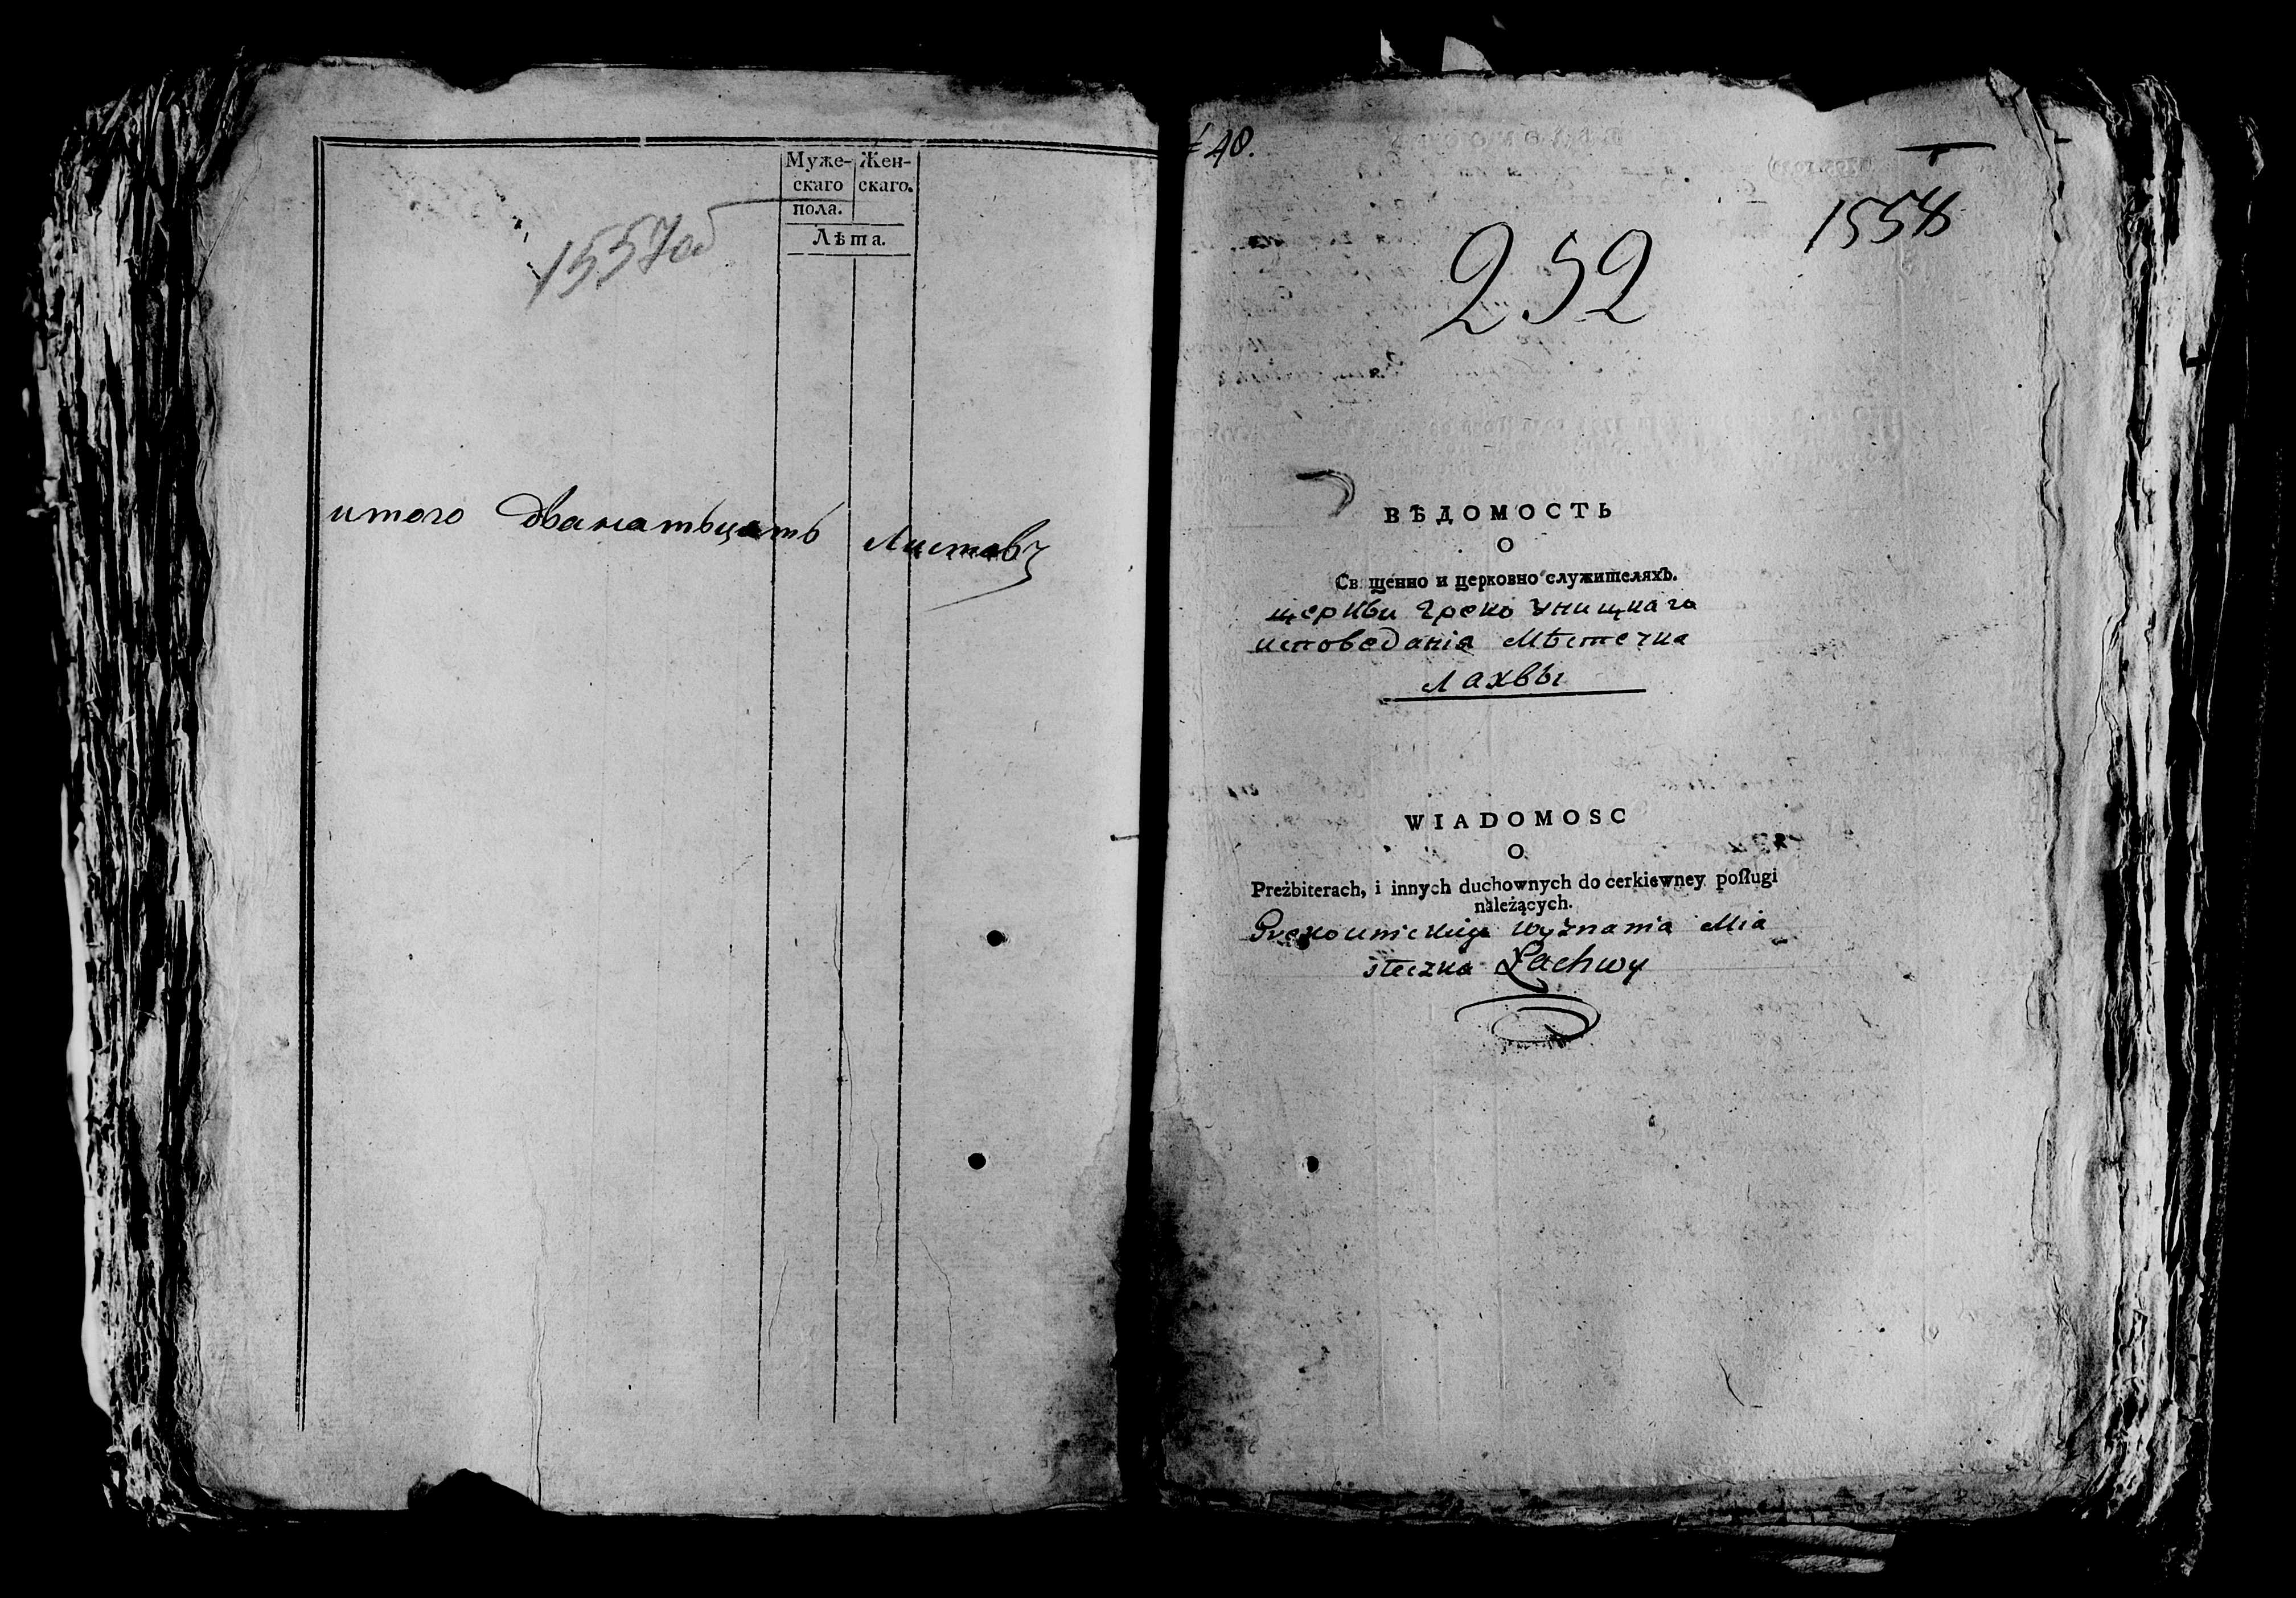 Муже- Жен-
скаго скаго.
пола.
Лѣта.
1557об
итого дванатьцать листовъ
48.
1558
252
ВѢДОМОСТЬ
О
Священно и церковно служителяхъ.
церкви Греко Уницкаго
исповеданія Мѣстечка
Лахвы
WIADOMOSC
O
Preżbiterach, i innych duchownych do cerkiewney poſługi
należących.
Grekounickiego wyznania Mia
steczka Łachwy